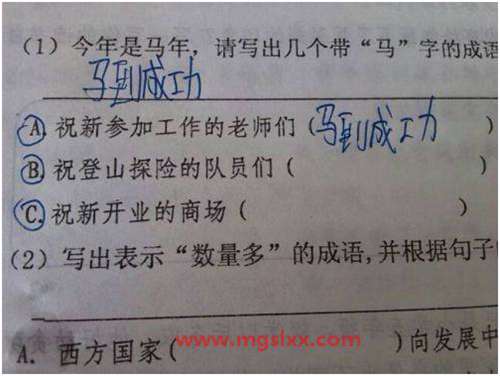 （1）今年是马年，请写出几个带“马”字的成语
马到成功
A. 祝新参加工作的老师们（马到成功）
B. 祝登山探险的队员们（ ）
C. 祝新开业的商场（ ）
（2）写出表示“数量多”的成语，并根据句子
www.mgslxx.com
A. 西方国家（ ）向发展中